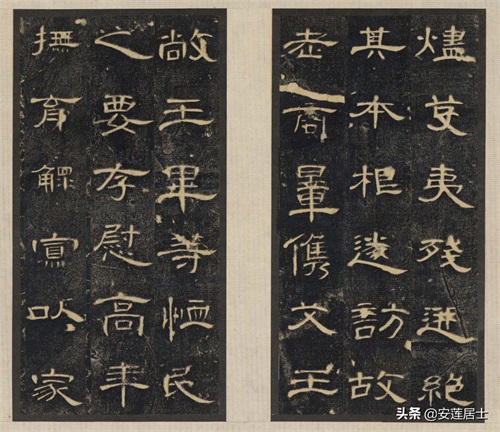 燼芟夷殘迸絕
其本根遂訪故
老商量儁艾王
敞王畢等恤民
之要存慰高年
撫育鰥寡以家
头条 @安莲居士